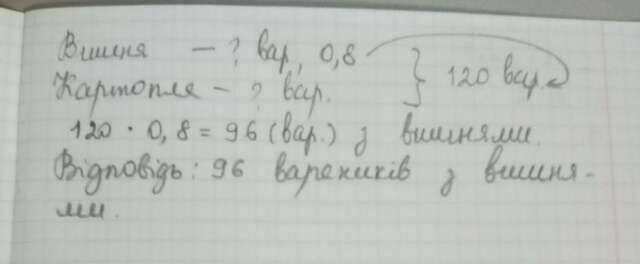 Вишня – ? вар., 0,8 } 120 вар.
Картопля – ? вар.
120 · 0,8 = 96 (вар.) з вишнями.
Відповідь: 96 вареників з вишня-
ми.